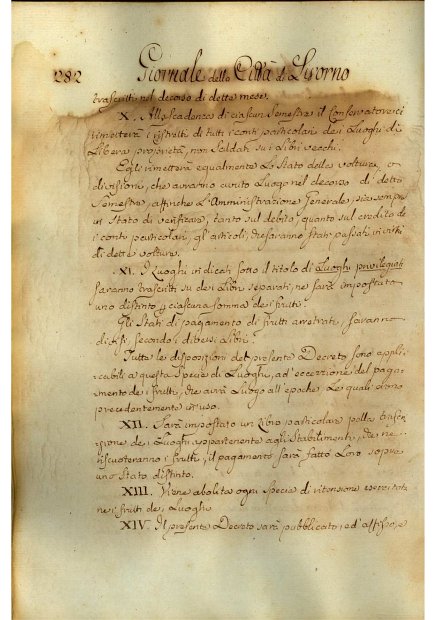 282 Giornale della Città di Livorno
trascritti nel decorso di detto mese.
X. Alla scadenza di ciascun Semestre il Conservatore ci
rimetterà i ristretti di tutti i conti particolari dei Luoghi di
Libera proprietà, non Saldati su i Libri vecchi.
Egli rimetterà egualmente Lo Stato delle volture, o
divisioni, che avranno avuto Luogo nel decorso di detto
Semestre, affinche L'Amministrazione Generale, sia sempre
in Stato di verificare, tanto sul debito, quanto sul credito de
i conti particolari, gl'articoli, che saranno stati passati in virtù
di dette volture.
XI. I Luoghi indicati sotto il titolo di Luoghi privilegiati
saranno trascritti su dei Libri separati, ne sarà impostato
uno distinto p ciascuna somma dei frutti.
Gli Stati di pagamento di frutti arretrati, saranno
divisi, secondo i diversi Libri.
Tutte le disposizioni del presente Decreto sono appli
cabili a questa Specie di Luoghi, ad'eccezione del paga
mento dei frutti, che avrà Luogo all'epoche, Le quali sono
precedentemente in uso.
XII. Sarà impostato un Libro particolare pella
sione dei Luoghi appartenente agli Stabilimenti, che ne
riscuoteranno i frutti, il pagamento sarà fatto Loro sopra
uno Stato distinto.
XIII. Viene abolita ogni Specie di ritensione esercitata
nei frutti dei Luoghi.
XIV. Il presente Decreto sarà pubblicato, ed'affisso, e